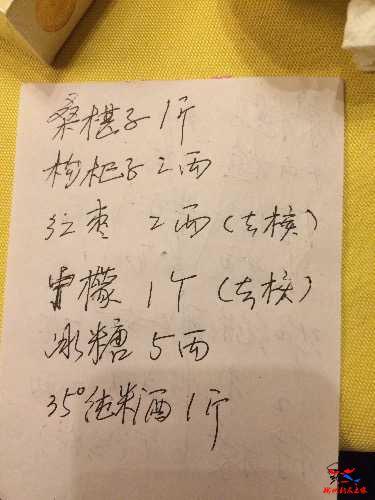 桑椹子 1斤
枸杞子 2两
红枣 2两(去核)
柠檬 1个(去核)
冰糖 5两
35°纯米酒 1斤